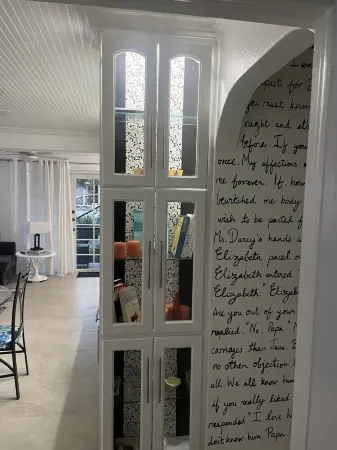 past for I
you must know
night and it's
before. If you
once. My affections
me forever. If, how
bewitched me body
wish to be parted f
Mr. Darcy's hands a
Elizabeth paced
Elizabeth entered
Elizabeth." Elizab
Are you out of your
replied. "No, Papa."
carriages than Jane.
no other objection
all. We all know him
if you really liked
responded "I love h
don't know him Papa